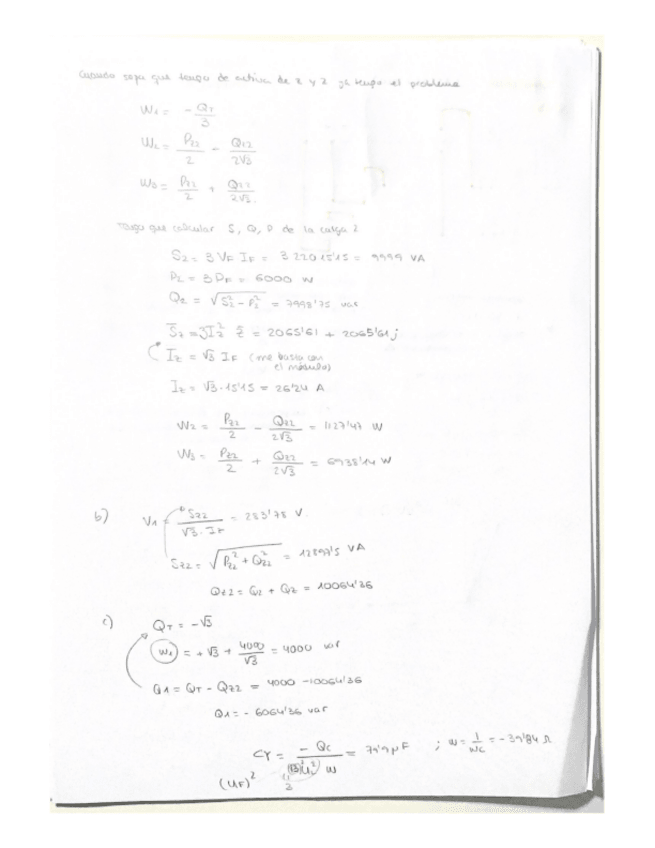 Cuando sepa que tengo de activa de z y 2 ya tengo el problema
W1 = - QT/3
W2 = Pz2/2 - Qz2/2√3
W3 = Pz2/2 + Qz2/2√3.
Tengo que calcular S, Q, P de la carga 2
S2 = 3 VF IF = 3 220 15'15 = 9999 VA
P2 = 3 PF = 6000 W
Q2 = √(S2² - P2²) = 7998'75 var
S̄z = 3Iz² z̄ = 2065'61 + 2065'61j
Iz = √3 IF (me basta con
el módulo)
Iz = √3·15'15 = 26'24 A
W2 = Pz2/2 - Qz2/2√3 = 1127'47 W
W3 = Pz2/2 + Qz2/2√3 = 6938'14 W
b) V1 = Sz2/√3·IF = 283'78 V.
Sz2 = √(Pz2² + Qz2²) = 12897'5 VA
Qz2 = Q2 + Qz = 10064'36
c) QT = -√3
W1 = +√3 + 4000/√3 = 4000 var
Q1 = QT - Qz2 = 4000 - 10064'36
Q1 = - 6064'36 var
CY = - Qc / (√3)² U² W = 79'9 μF ; W = 1/WC = - 39'84 Ω
(UF)² 3